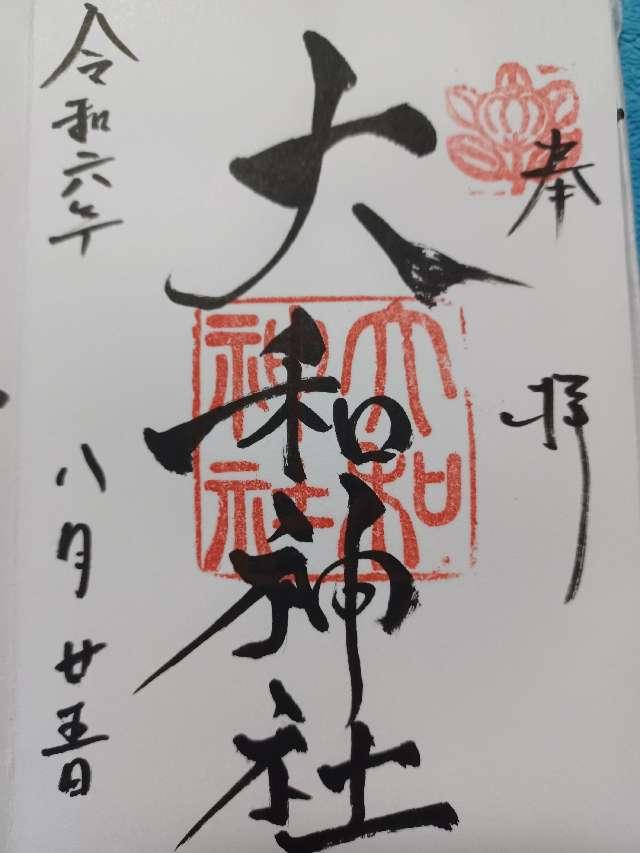 奉拝
大和神社
大和
神社
令和六年八月廿五日